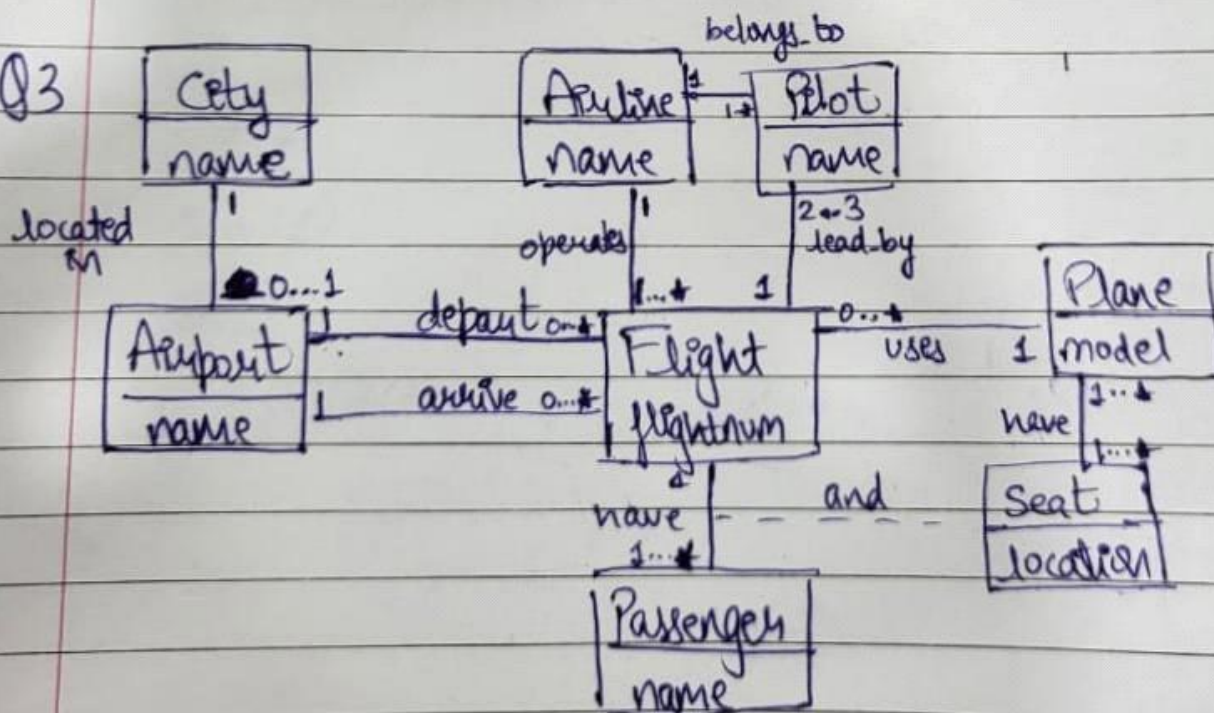 belongs_to
Q3
City
name
Airline
name
1
1*
Pilot
name
1
located
in
0...1
1
operates
1...*
2..3
lead_by
1
Airport
name
1
depart
0..*
1
arrive
0...*
Flight
flightnum
0...*
uses
1
Plane
model
1..*
have
1...*
Seat
location
have
and
1...*
Passenger
name